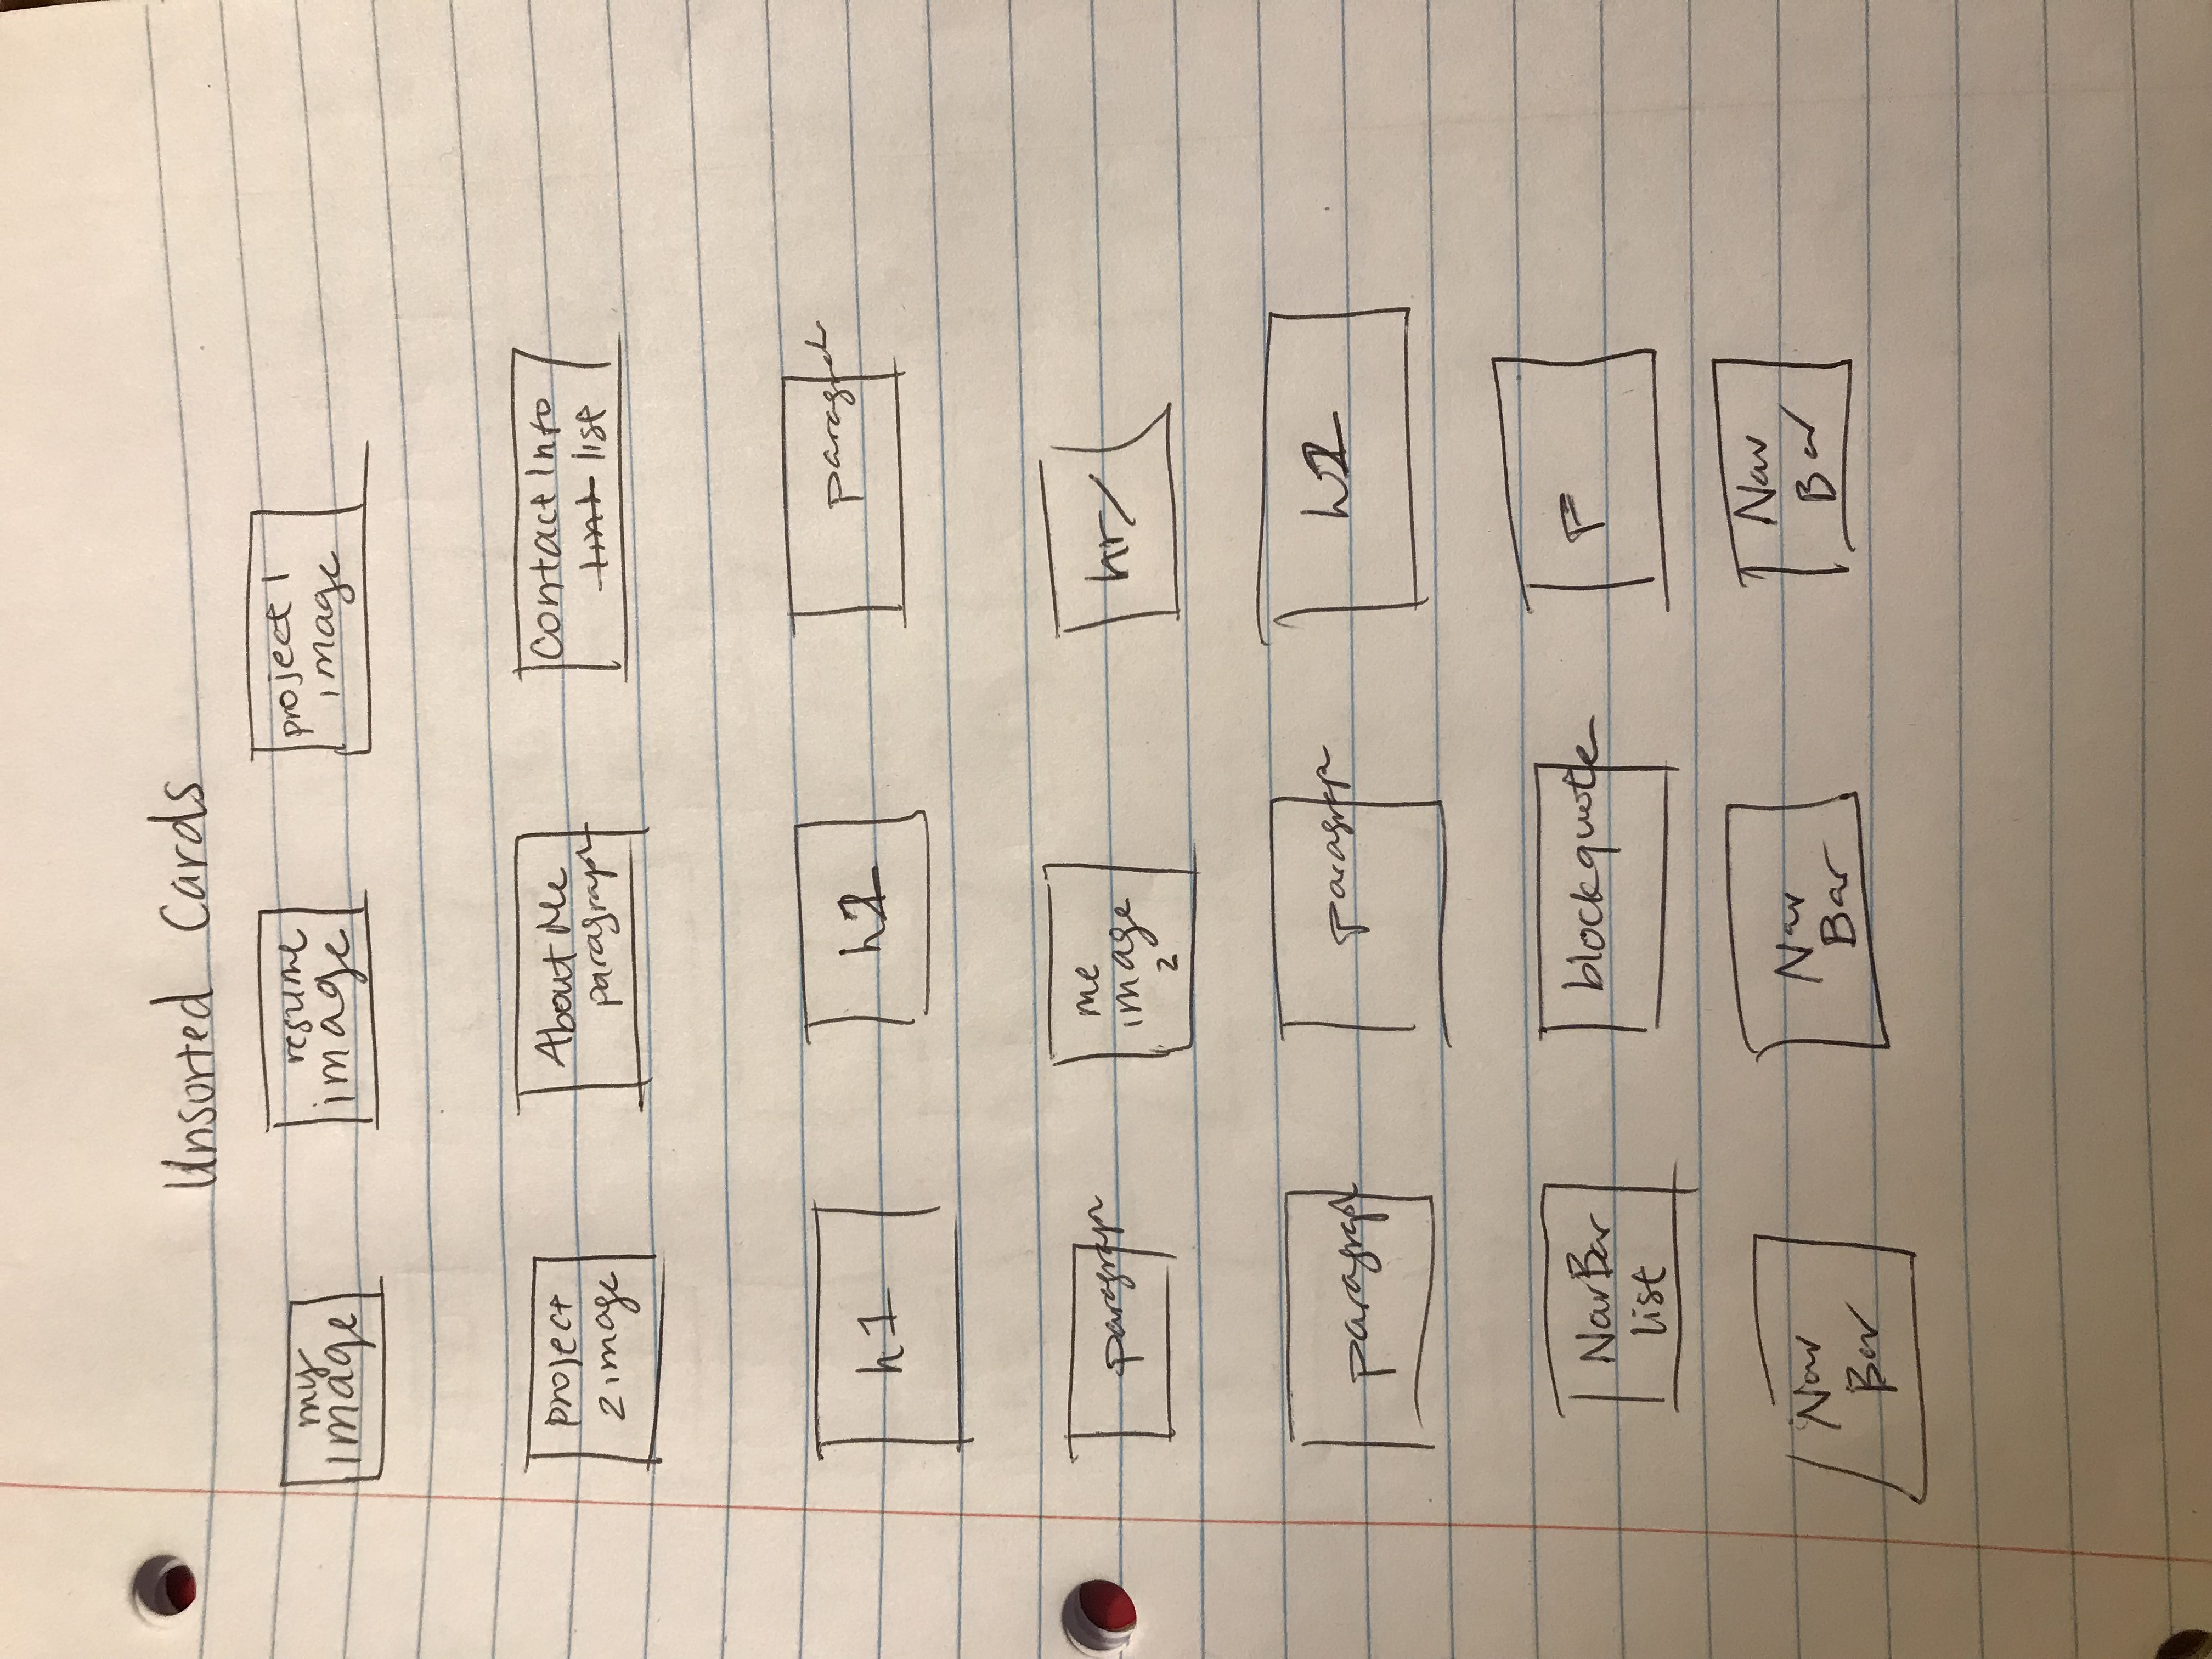 Unsorted Cards
my image
resume image
project 1 image
project 2 image
About Me paragraph
Contact Info list
h1
paragraph
paragraph
me image 2
hr/
paragraph
paragraph
NavBar list
blockquote
P
Nav Bar
Nav Bar
Nav Bar